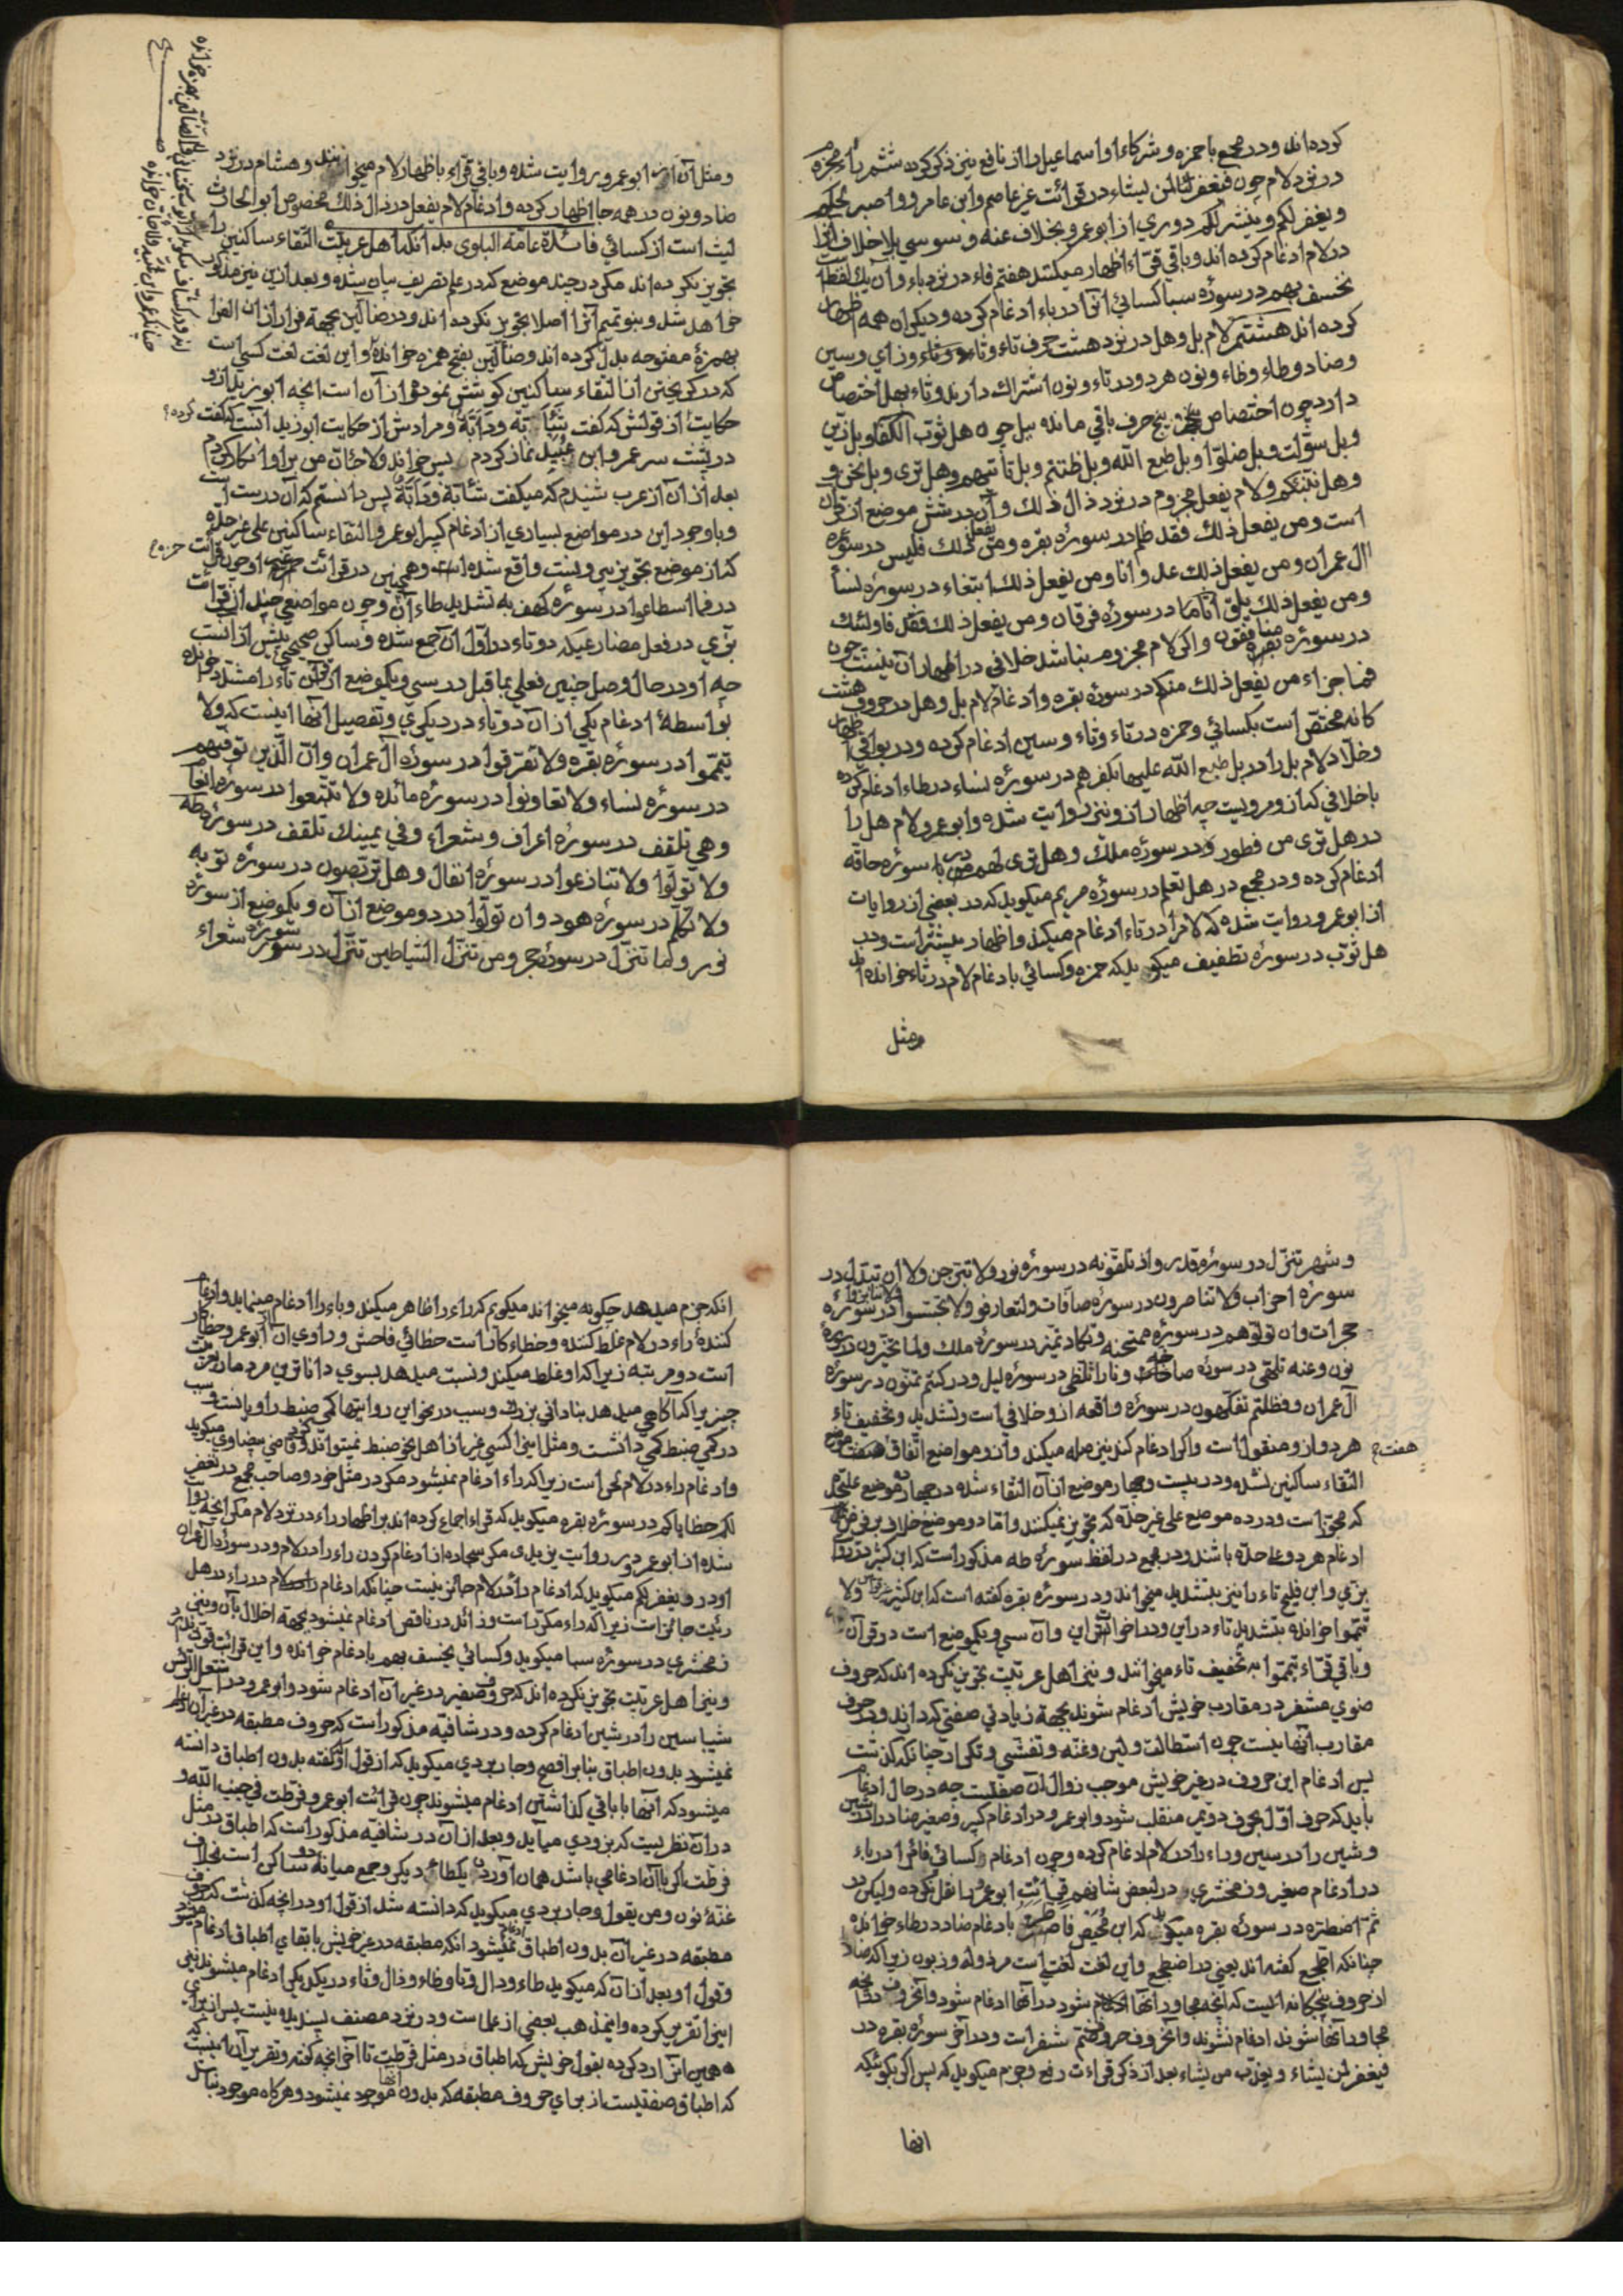 كرده‌اند ودر مجمع با حمزه وشركاء او اسماعيل را از نافع نيز ذكر كرده ششم راء مجزومه
در نزد لام چون فيغفر لمن يشاء در قرائت غير عاصم وابن عامر وواصبر لحكم
ويغفر لكم وينشر لكم دوري از ابو عمرو بخلاف عنه وسوسي بلا خلاف آنرا
در لام ادغام كرده‌اند وباقي قرّاء اظهار ميكنند هفتم فاء در نزد باء وآن يك لفظ است
نخسف بهم در سورهٔ سبا كسائي آنرا در باء ادغام كرده وديكران همه اظهار
كرده‌اند هشتم لام بل وهل در نزد هشت حرف تاء وثاء وزاي وسين
وضاد وطاء وظاء ونون هر دو در تاء ونون اشتراك دارند وثاء بهل اختصاص
دارد چون اختصاص پنج حرف باقي مانده ببل چون هل ثوّب الكفّار وبل زيّن
وبل سوّلت وبل ضلّوا وبل طبع الله وبل ظننتم وبل تأتيهم وهل ترى وبل نحن و
وهل ننبّئكم ولام يفعل مجزوم در نزد ذال ذلك وآن در شش موضع از قرآن
است ومن يفعل ذلك فقد ظلم در سورهٔ بقره ومن يفعل ذلك فليس در سورهٔ
آل عمران ومن يفعل ذلك عدوانا ومن يفعل ذلك ابتغاء در سورهٔ نساء
ومن يفعل ذلك يلق اثاما در سورهٔ فرقان ومن يفعل ذلك فاولئك
در سورهٔ منافقون واكر لام مجزوم نباشد خلافي در اظهار آن نيست چون
فما جزاء من يفعل ذلك منكم در سورهٔ بقره وادغام لام بل وهل در حروف هشت
كانه مختصّ است بكسائي وحمزه در تاء وثاء وسين ادغام كرده ودر بواقي اظهار
وخلّاد لام بل را در بل طبع الله عليها بكفرهم در سورهٔ نساء در طاء ادغام كرده
با خلافي كه ازو مرويست چه اظهار ازو نيز روايت شده وابو عمرو لام هل را
در هل ترى من فطور در سورهٔ ملك وهل ترى لهم من باقيه در سورهٔ حاقه
ادغام كرده ودر مجمع در هل تعلم در سورهٔ مريم ميكويد كه در بعضي از روايات
از ابو عمرو روايت شده كه لام را در تاء ادغام ميكند واظهار بيشتر است ودر
هل ثوّب در سورهٔ تطفيف ميكويد كه حمزه وكسائي بادغام لام در ثاء خوانده‌اند
ومثل
ومثل آن از ابو عمرو روايت شده وباقي قرّاء باظهار لام ميخوانند وهشام در نزد
ضاد ونون در همه جا اظهار كرده وادغام لام يفعل در ذال ذلك مخصوص ابو الحارث
ليث است از كسائي فائدة عامّة البلوى بدانكه اهل عربيّت التقاء ساكنين را
تجويز نكرده‌اند مكر در چند موضع كه در علم تصريف بيان شده وبعد ازين نيز مذكور
خواهد شد وبنو تميم آنرا اصلا تجويز نكرده‌اند ودر ضالّين بجهة فرار از آن الف را
بهمزهٔ مفتوحه بدل كرده‌اند وضألّين بفتح همزه خوانده واين لغت لغت كسي است
كه در كريختن از التقاء ساكنين كوشش نموده واز آن است آنچه ابو زيد ازو
حكايت از قولش كه كفت شأبّة ودأبّة ومرادش از حكايت ابو زيد آنست كه كفت
در پشت سر عمرو ابن عبيد نماز كردم پس خواند ولا جأنّ من برو انكار كردم
بعد از آن از عرب شنيدم كه ميكفت شأبّة ودأبّة پس دانستم كه آن درست است
وبا وجود اين در مواضع بسياري از ادغام كبير ابو عمرو التقاء ساكنين على غير حدّه
كه از موضع تجويز نيست واقع شده است وهمچنين در قرائت حمزه
در فما اسطاعوا در سورهٔ كهف به تشديد طاء آن وچون مواضعي چند از قرائت
بزّي در فعل مضارعي كه دو تاء در اوّل آن جمع شده وساكن صحيحي پيش از آنست
چه او در حال وصل چنين فعلي بما قبل در سي ويكموضع از قرآن تاء را مشدّد خوانده
بواسطهٔ ادغام يكي از آن دو تاء در ديكري وتفصيل آنها اينست كه ولا
تيمّموا در سورهٔ بقره ولا تفرّقوا در سورهٔ آل عمران وانّ الّذين توفّيهم
در سورهٔ نساء ولا تعاونوا در سورهٔ مائده ولا تتّبعوا در سورهٔ انعام
وهي تلقف در سورهٔ اعراف وشعراء وفي يمينك تلقف در سورهٔ طه
ولا تولّوا ولا تنازعوا در سورهٔ انفال وهل تربّصون در سورهٔ توبه
ولا تكلّم در سورهٔ هود وان تولّوا در دو موضع از آن ويكموضع از سورهٔ
نور وما تنزّل در سورهٔ حجر ومن تنزّل الشياطين تنزّل در سورهٔ شعراء
وشهر تنزّل در سورهٔ قدر واذ تلقّونه در سورهٔ نور ولا تبرّجن ولا ان تبدّل در
سورهٔ احزاب ولا تناصرون در سورهٔ صافّات ولتعارفوا ولا تجسّسوا ولا تنابزوا در سورهٔ
حجرات وان تولّوهم در سورهٔ ممتحنه وتكاد تميّز در سورهٔ ملك ولما تخيّرون در سورهٔ
نون وعنه تلهّى در سورهٔ صاخّه ونارا تلظّى در سورهٔ ليل ودر كنتم تمنّون در سورهٔ
آل عمران وفظلتم تفكّهون در سورهٔ واقعه ازو خلافي است وتشديد وتخفيف تاء
هر دو ازو منقول است واكر ادغام كند نيز صله ميكند وازو مواضع اتّفاق هفت موضع
التقاء ساكنين نشده ودر بيست وچهار موضع از آن التقاء شده در چهارده موضع على حدّه
كه مجوّز است ودر ده موضع على غير حدّه كه تجويز نميكنند وامّا دو موضع خلاف بر فرض
ادغام هر دو على حدّه باشد ودر مجمع در لفظ سورهٔ طه مذكور است كه ابن كثير در روايت
بزّي وابن فليح تاء را نيز بتشديد ميخواند ودر سورهٔ بقره كفته است كه ابن كثير ولا
تيمّموا خوانده بتشديد تاء در اين ودر اخوات اين وآن سي ويكموضع است در قرآن
وباقي قرّاء تيمّموا به تخفيف تاء ميخوانند ونيز اهل عربيّت تجويز نكرده‌اند كه حروف
ضوي مشفر در مقارب خويش ادغام شوند بجهة زيادتي صفتي كه دارند ودر حروف
مقارب آنها نيست چون استطالت ولين وغنّه وتفشّي وتكرار چنانكه كذشت
پس ادغام اين حروف در غير خويش موجب زوال آن صفتست چه در حال ادغام
بايد كه حرف اوّل بحرف دوّم منقلب شود وابو عمرو در ادغام كبير وصغير ضاد را در شين
وشين را در سين وراء را در لام ادغام كرده وچون ادغام كسائي فاء را در باء
در ادغام صغير وزمخشري در لبعض شأنهم قرائت ابو عمرو را نقل نكرده وليكن در
ثمّ اضطرّه در سورهٔ بقره ميكويد كه ابن محيصن فاطّرّه بادغام ضاد در طاء خوانده
چنانكه اطّجع كفته‌اند يعني در اضطجع واين لغت لغتي است مرذوله وزبون زيرا كه ضاد
از حروف پنجكانه ايست كه آنچه مجاور آنها شود در آنها ادغام شود وآنحروف در آنچه
مجاور آنها شوند ادغام نشوند وآنحروف حروف ضمّ شفر است ودر آخر سورهٔ بقره در
فيغفر لمن يشاء ويعذّب من يشاء بعد از ذكر قراءت رفع وجزم ميكويد كه پس اكر بكوئي كه
هفت
انها
انكه جزم ميدهد چكونه ميخواند ميكويم كه راء را ظاهر ميكند وباء را ادغام مينمايد وادغام
كنندهٔ راء در لام غلط كننده وخطاء كار است خطائي فاحش وراوي آن از ابو عمرو خطاكار
است دو مرتبه زيرا كه او غلط ميكند ونسبت ميدهد بسوي داناترين مردمان بعربيت
چيزيرا كه آكاهي ميدهد بناداني بزرك وسبب در نحو اين روايتها كمي ضبط راويانست وسبب
در كمي ضبط كمي دانشت ومثل اينرا كسي غير از اهل نحو ضبط نميتواند كرد وقاضي بيضاوي ميكويد
وادغام راء در لام لحن است زيرا كه راء ادغام نميشود مكر در مثل خود وصاحب مجمع در نغفر
لكم خطاياكم در سورهٔ بقره ميكويد كه قرّاء اجماع كرده‌اند بر اظهار راء در نزد لام مكر آنچه روايت
شده از ابو عمرو در روايت يزيدي مكر سجاده از ادغام كردن راء را در لام ودر سورهٔ آل عمران
او در ويغفر لكم ميكويد كه ادغام راء در لام جائز نيست چنانكه ادغام لام در راء در هل
رئيت جائز است زيرا كه راء مكرّر است وزائد در ناقص ادغام نميشود بجهة اخلال بآن ونيز
زمخشري در سورهٔ سبا ميكويد وكسائي نخسف بهم بادغام خوانده واين قرائت قوي نيست
ونيز اهل عربيّت تجويز نكرده‌اند كه حروف صفير در غير آن ادغام شود وابو عمرو در اشتعل الرّأس
شيبا سين را در شين ادغام كرده ودر شافيه مذكور است كه حروف مطبقه در غير آن ادغام
نميشود بدون اطباق بنابر افصح وجاربردي ميكويد كه از قول او كفته بدون اطباق دانسته
ميشود كه آنها با باقي كذاشتن ادغام ميشوند چون قرائت ابو عمرو فرّطت في جنب الله و
در آن نظريست كه بزودي ميآيد وبعد از آن در شافيه مذكور است كه اطباق در مثل
فرّطت اكر با آن ادغامي باشد همان آوردن يكطاء ديكر وجمع ميانهٔ دو ساكن است بخلاف
غنّهٔ نون ومن يقول وجاربردي ميكويد كه دانسته شد از قول او در آنچه كذشت كه حروف
مطبقه در غير آن بدون اطباق ادغام نميشود انكه مطبقه در غير خويش با بقاي اطباق ادغام ميشود
وقول او بعد از آن كه ميكويد طاء ودال وتا وظاء وذال وثاء در يكديكر ادغام ميشوند نيز
اينرا تقرير كرده واينمذهب بعضي از علماست ودر نزد مصنف پسنديده نيست پس از براي
همين آنرا رد كرده بقول خويش كه اطباق در مثل فرّطت تا آخر آنچه كفته وتقرير آن اينست
كه اطباق صفتيست از براي حروف مطبقه كه بدون آنها موجود نميشود وهركاه موجود نباشد